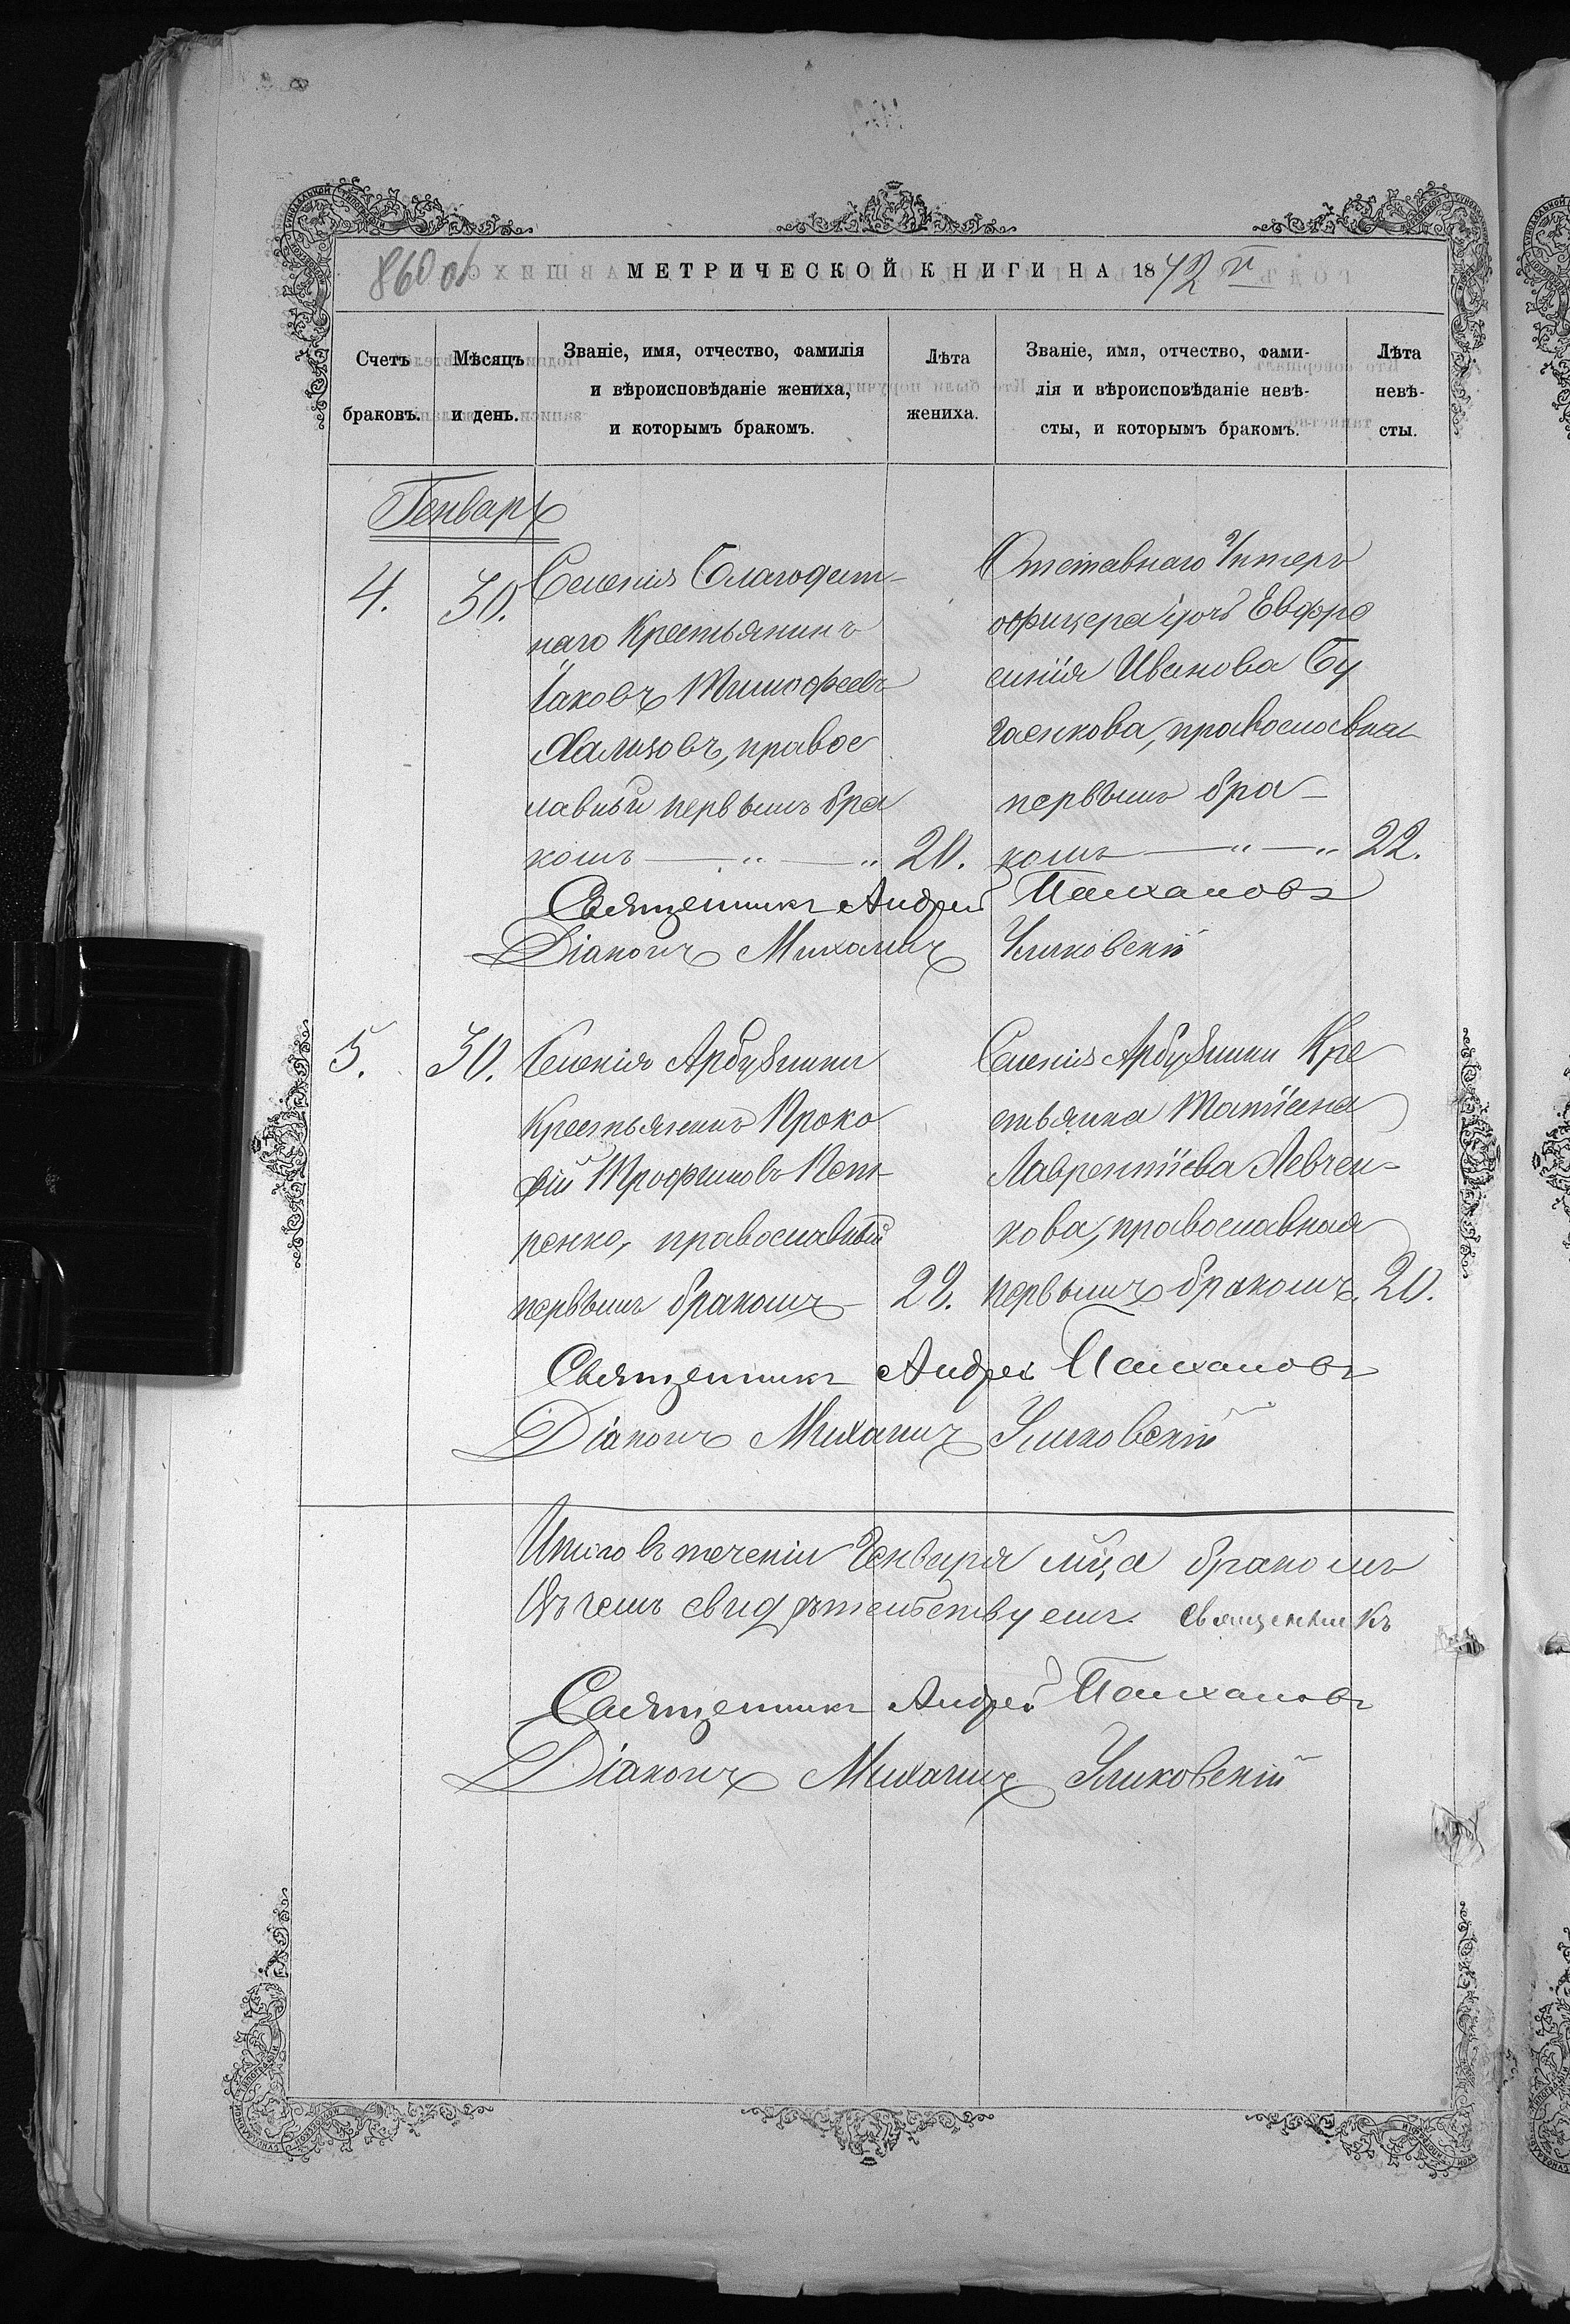 860 об
МЕТРИЧЕСКОЙ КНИГИ НА 1872 г
Счетъ браковъ.
Мѣсяцъ и день.
Званіе, имя, отчество, фамилія
и вѣроисповѣданіе жениха,
и которымъ бракомъ.
Лѣта жениха.
Званіе, имя, отчество, фами-
лія и вѣроисповѣданіе невѣ-
сты, и которымъ бракомъ.
Лѣта невѣ-
сты.
Генварь
4. 30.
Селенія Благодат-
наго Крестьянинъ
Іаковъ Тимофеевъ
Хализовъ, правос
лавный первымъ бра
комъ — „ — „ 20.
Отставнаго Унтеръ
офицера дочь Евфро
синія Иванова Бу
гаенкова, православная
первымъ бра-
комъ — „ — „ 22.
Священникъ Андрей
Діаконъ Михаилъ
5. 30.
Селенія Арбузинки
Крестьянинъ Проко
фій Трофимовъ Пет-
ренко, православный
первымъ бракомъ — 22.
Селенія Арбузинки Кре
стьянка Татіана
Лаврентіева Левчен-
кова, православная
первымъ бракомъ. 20.
Священникъ Андрей
Діаконъ Михаилъ
Итого въ теченіи Генваря мца бракомъ
Въ чемъ свидѣтельствуемъ. Священникъ
Священникъ Андрей
Діаконъ Михаилъ